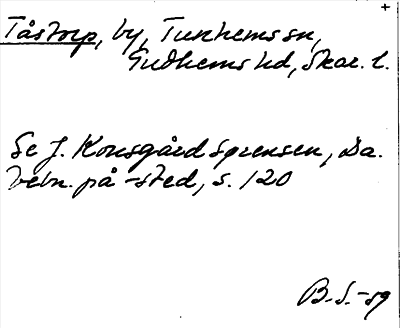 +
Tåstorp, by, Tunhems sn,
Gudhems hd, Skar. l.
Se J. Kousgård Sørensen, Da.
bebn. på -sted, s. 120
B. S. -59